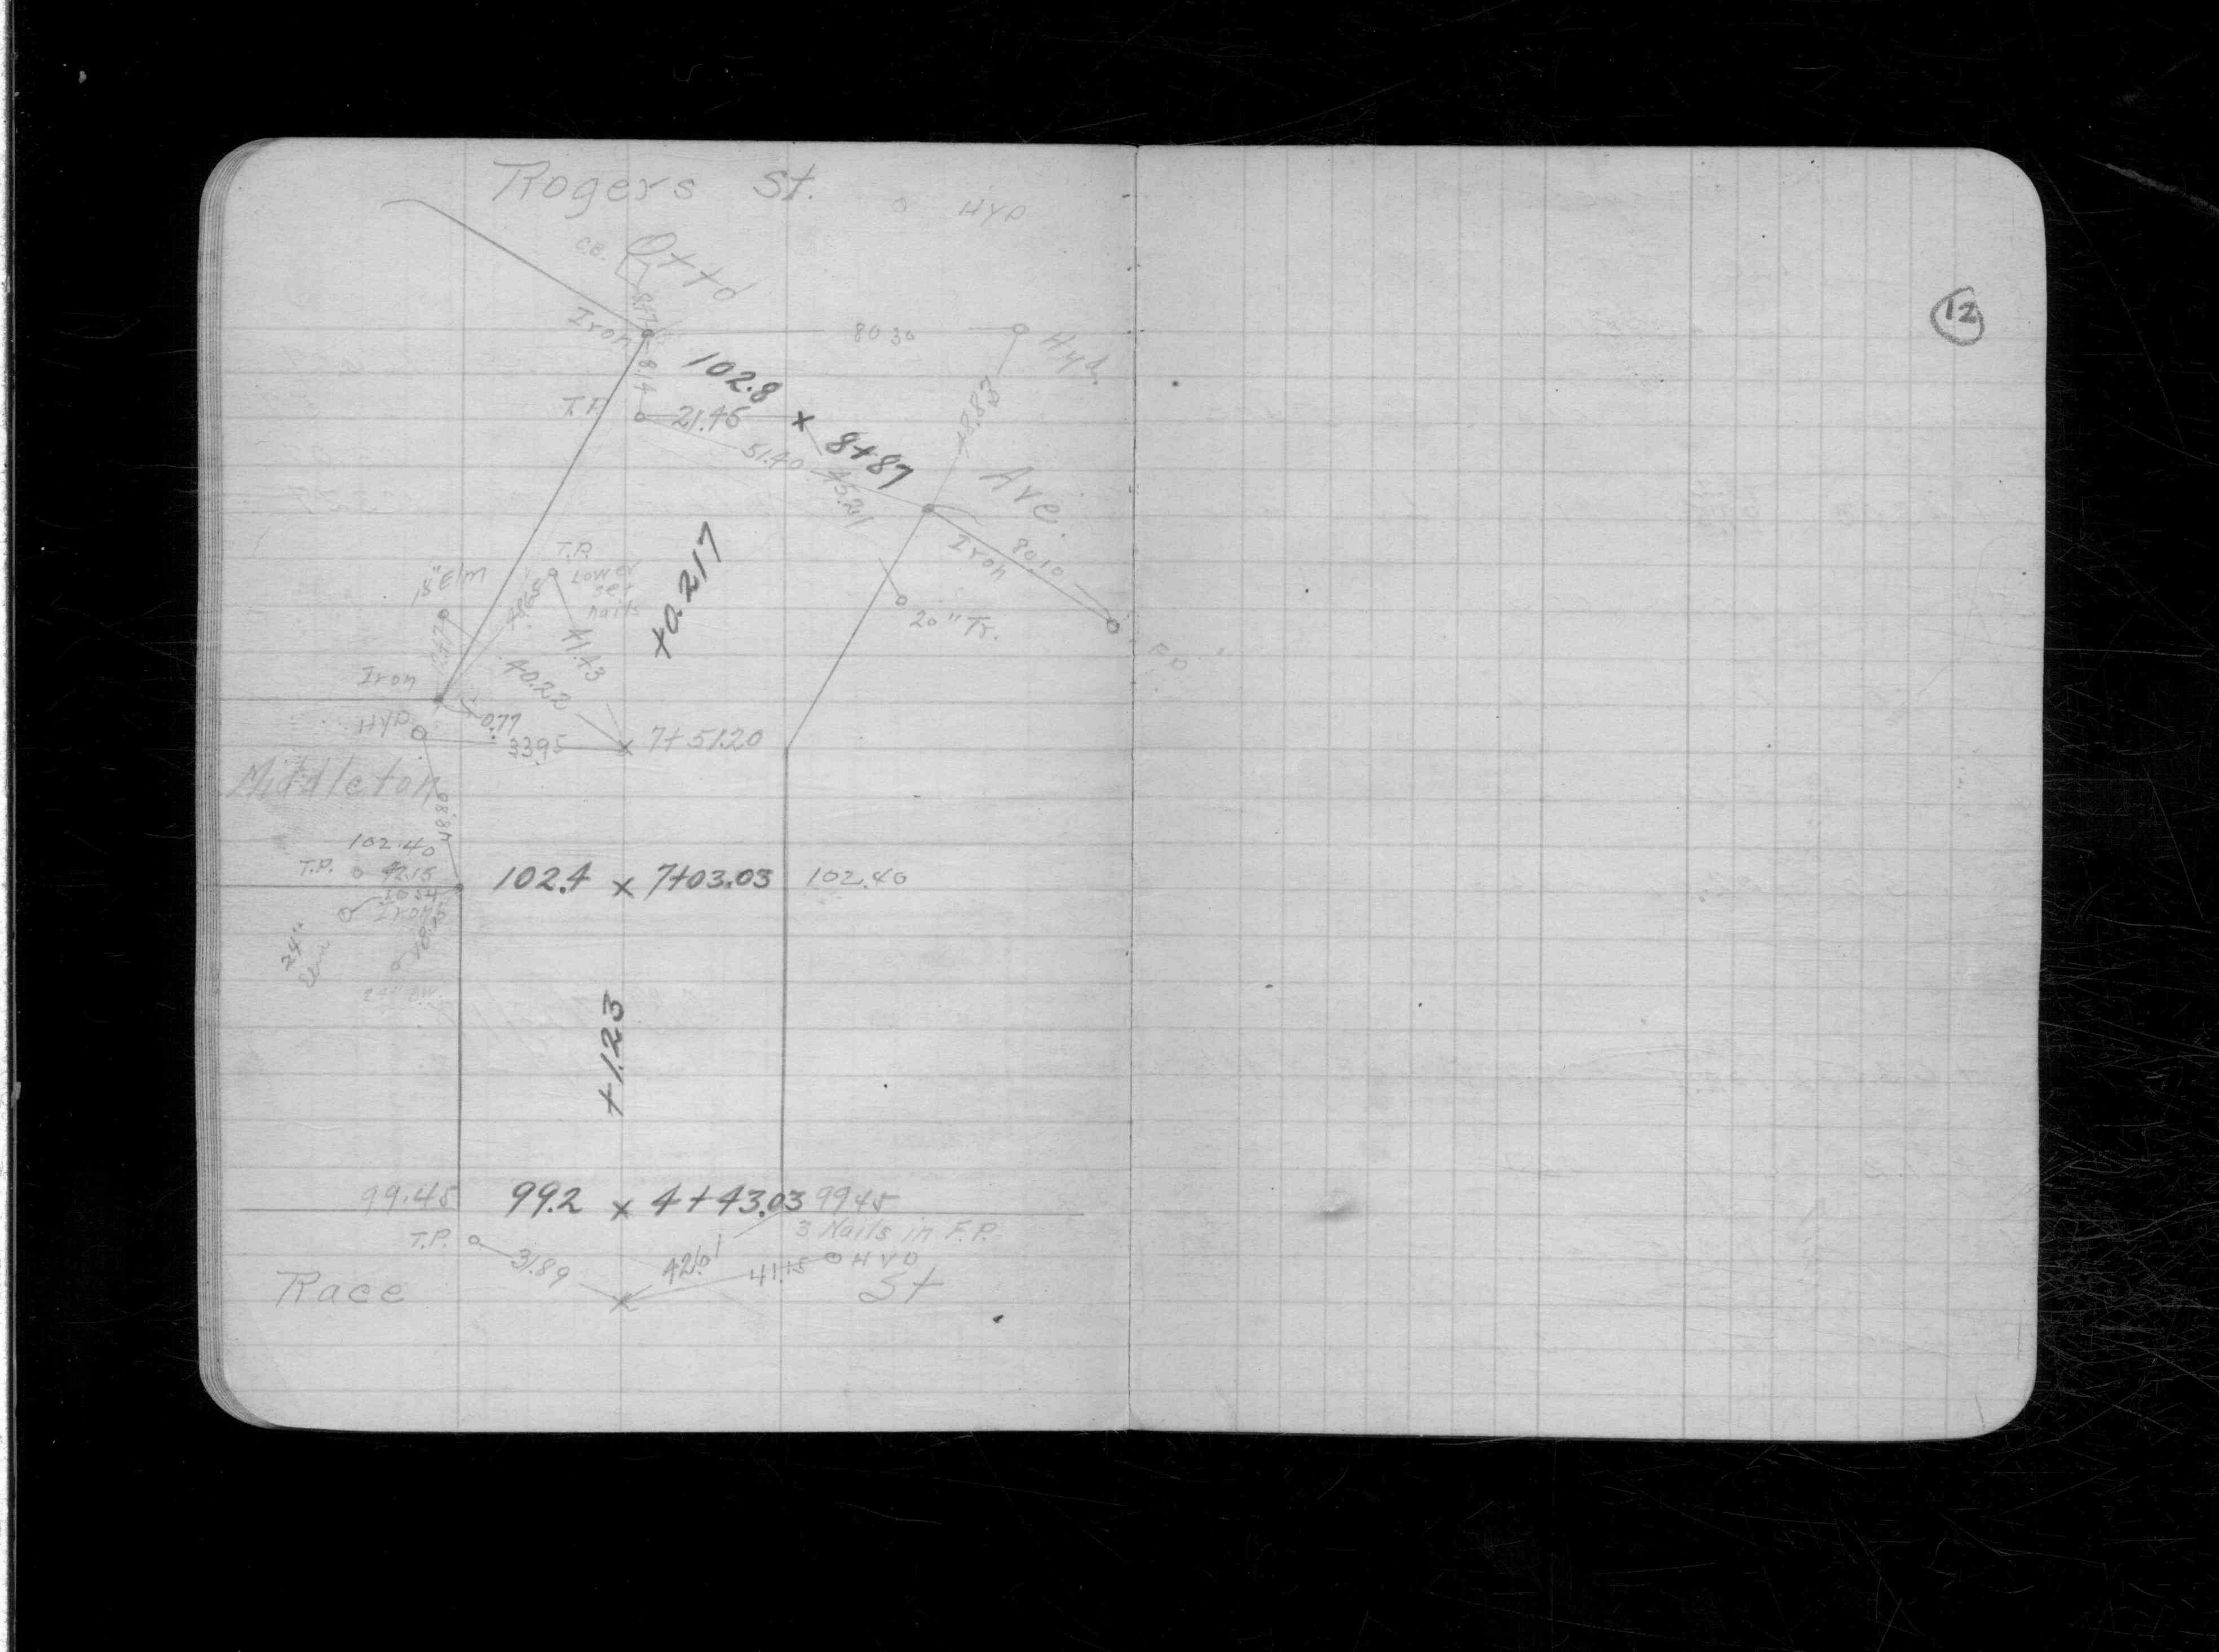 Rogers St.
HYD
C.B. Otto
12
Iron 80 30 Hyd.
8.14
102.8
T.P. 21.46 x 8+87
51.40 45.21
Ave.
Iron 80.10
+0.217
T.P.
Lower
set
nails
18" Elm
41.43
20" Tr.
Iron 40.22
HYD 0.77
33.95 x 7+51.20
Middleton
48.80
102.40
T.P. 42.15 102.4 x 7+03.03 102.40
Iron
24"
Elm
+1.23
99.45 99.2 x 4+43.03 99.45
3 Nails in F.P.
T.P. 31.89 42.01 41.15 HYD
Race St